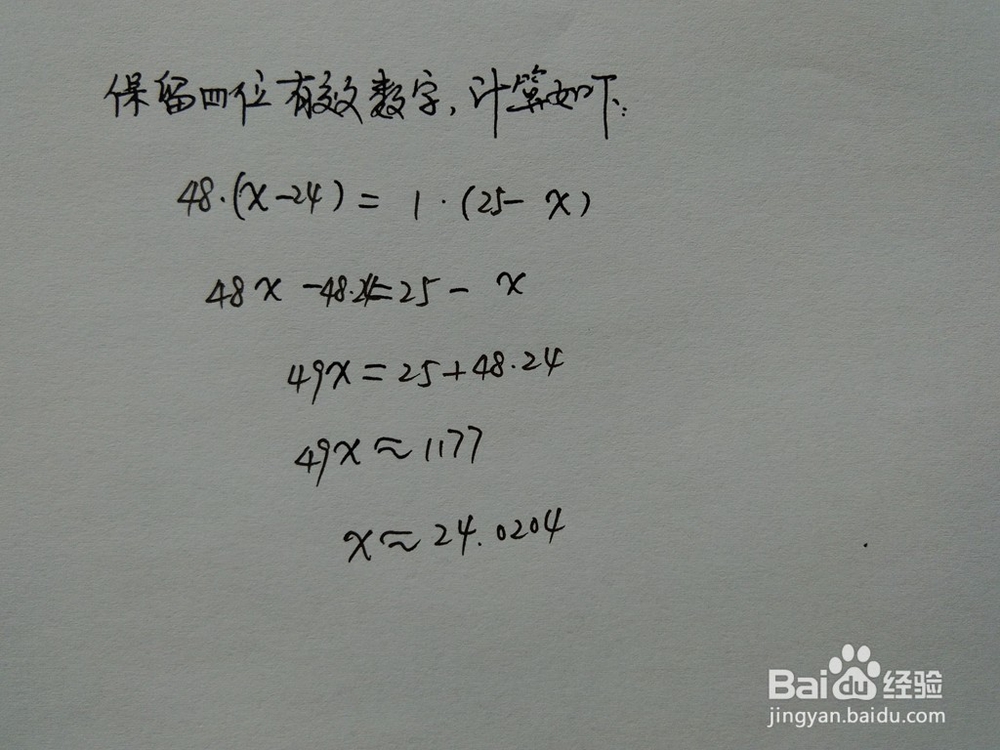 保留四位有效数字,计算如下:
48·(x-24)=1·(25-x)
48x-48·24=25-x
49x=25+48·24
49x≈1177
x≈24.0204
Baidu经验
jingyan.baidu.com